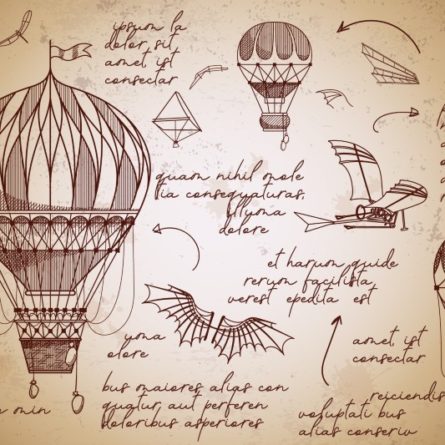 ipsum la
dolor sit
amet ist
consectar
quam nihil mole
tia consequaturas,
illyma
dolore
et harum quide
rerum facilista
verest epedita est
uma
olore
amet, ist
consectar
bus maiores alias con
quatur aut perferen
doloribus asperiores
min
reiciendis
voluptati bus
alias conseriv